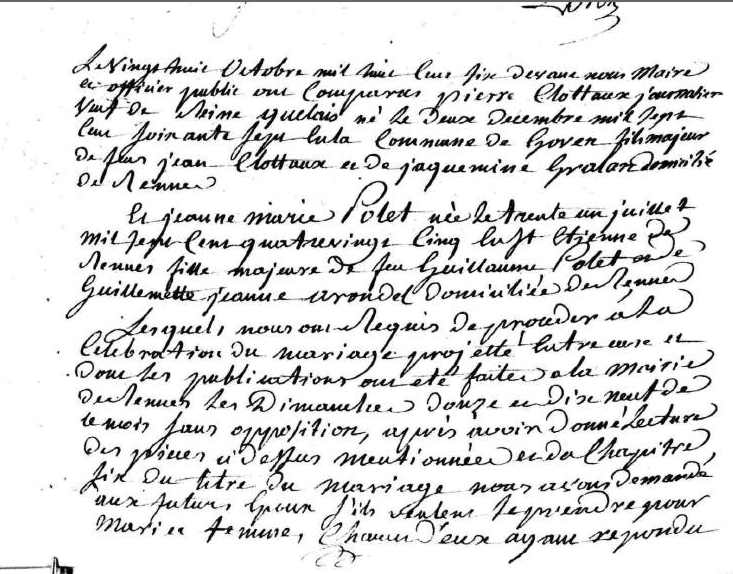 Le vingt huit Octobre mil huit Cent six devant nous Maire
et officier public ont Comparus pierre Clottaux journalier
veuf de Reine quelais né le deux decembre mil sept
Cent soixante sept en la Commune de Goven fils majeur
de feus jean Clottaux et de jaquemine Gralan domicilié
de Rennes
Et jeanne marie Polet née le trente un juillet
mil sept Cent quatrevingt Cinq en St Etienne de
Rennes fille majeure de feu Guillaume Polet et de
Guillemette jeanne arondel domiciliée de Rennes
Lesquels nous ont Requis de proceder à la
Celebration du mariage projetté entre eux et
dont les publications ont eté faites a la mairie
de Rennes les Dimanches douze et dix neuf de
ce mois sans opposition, après avoir donné Lecture
des pieces ci dessus mentionnées et du Chapitre
six du titre du mariage nous avons demandé
aux futurs Epoux s'ils veulent se prendre pour
Mari et femme, Chacun d'eux ayant repondu